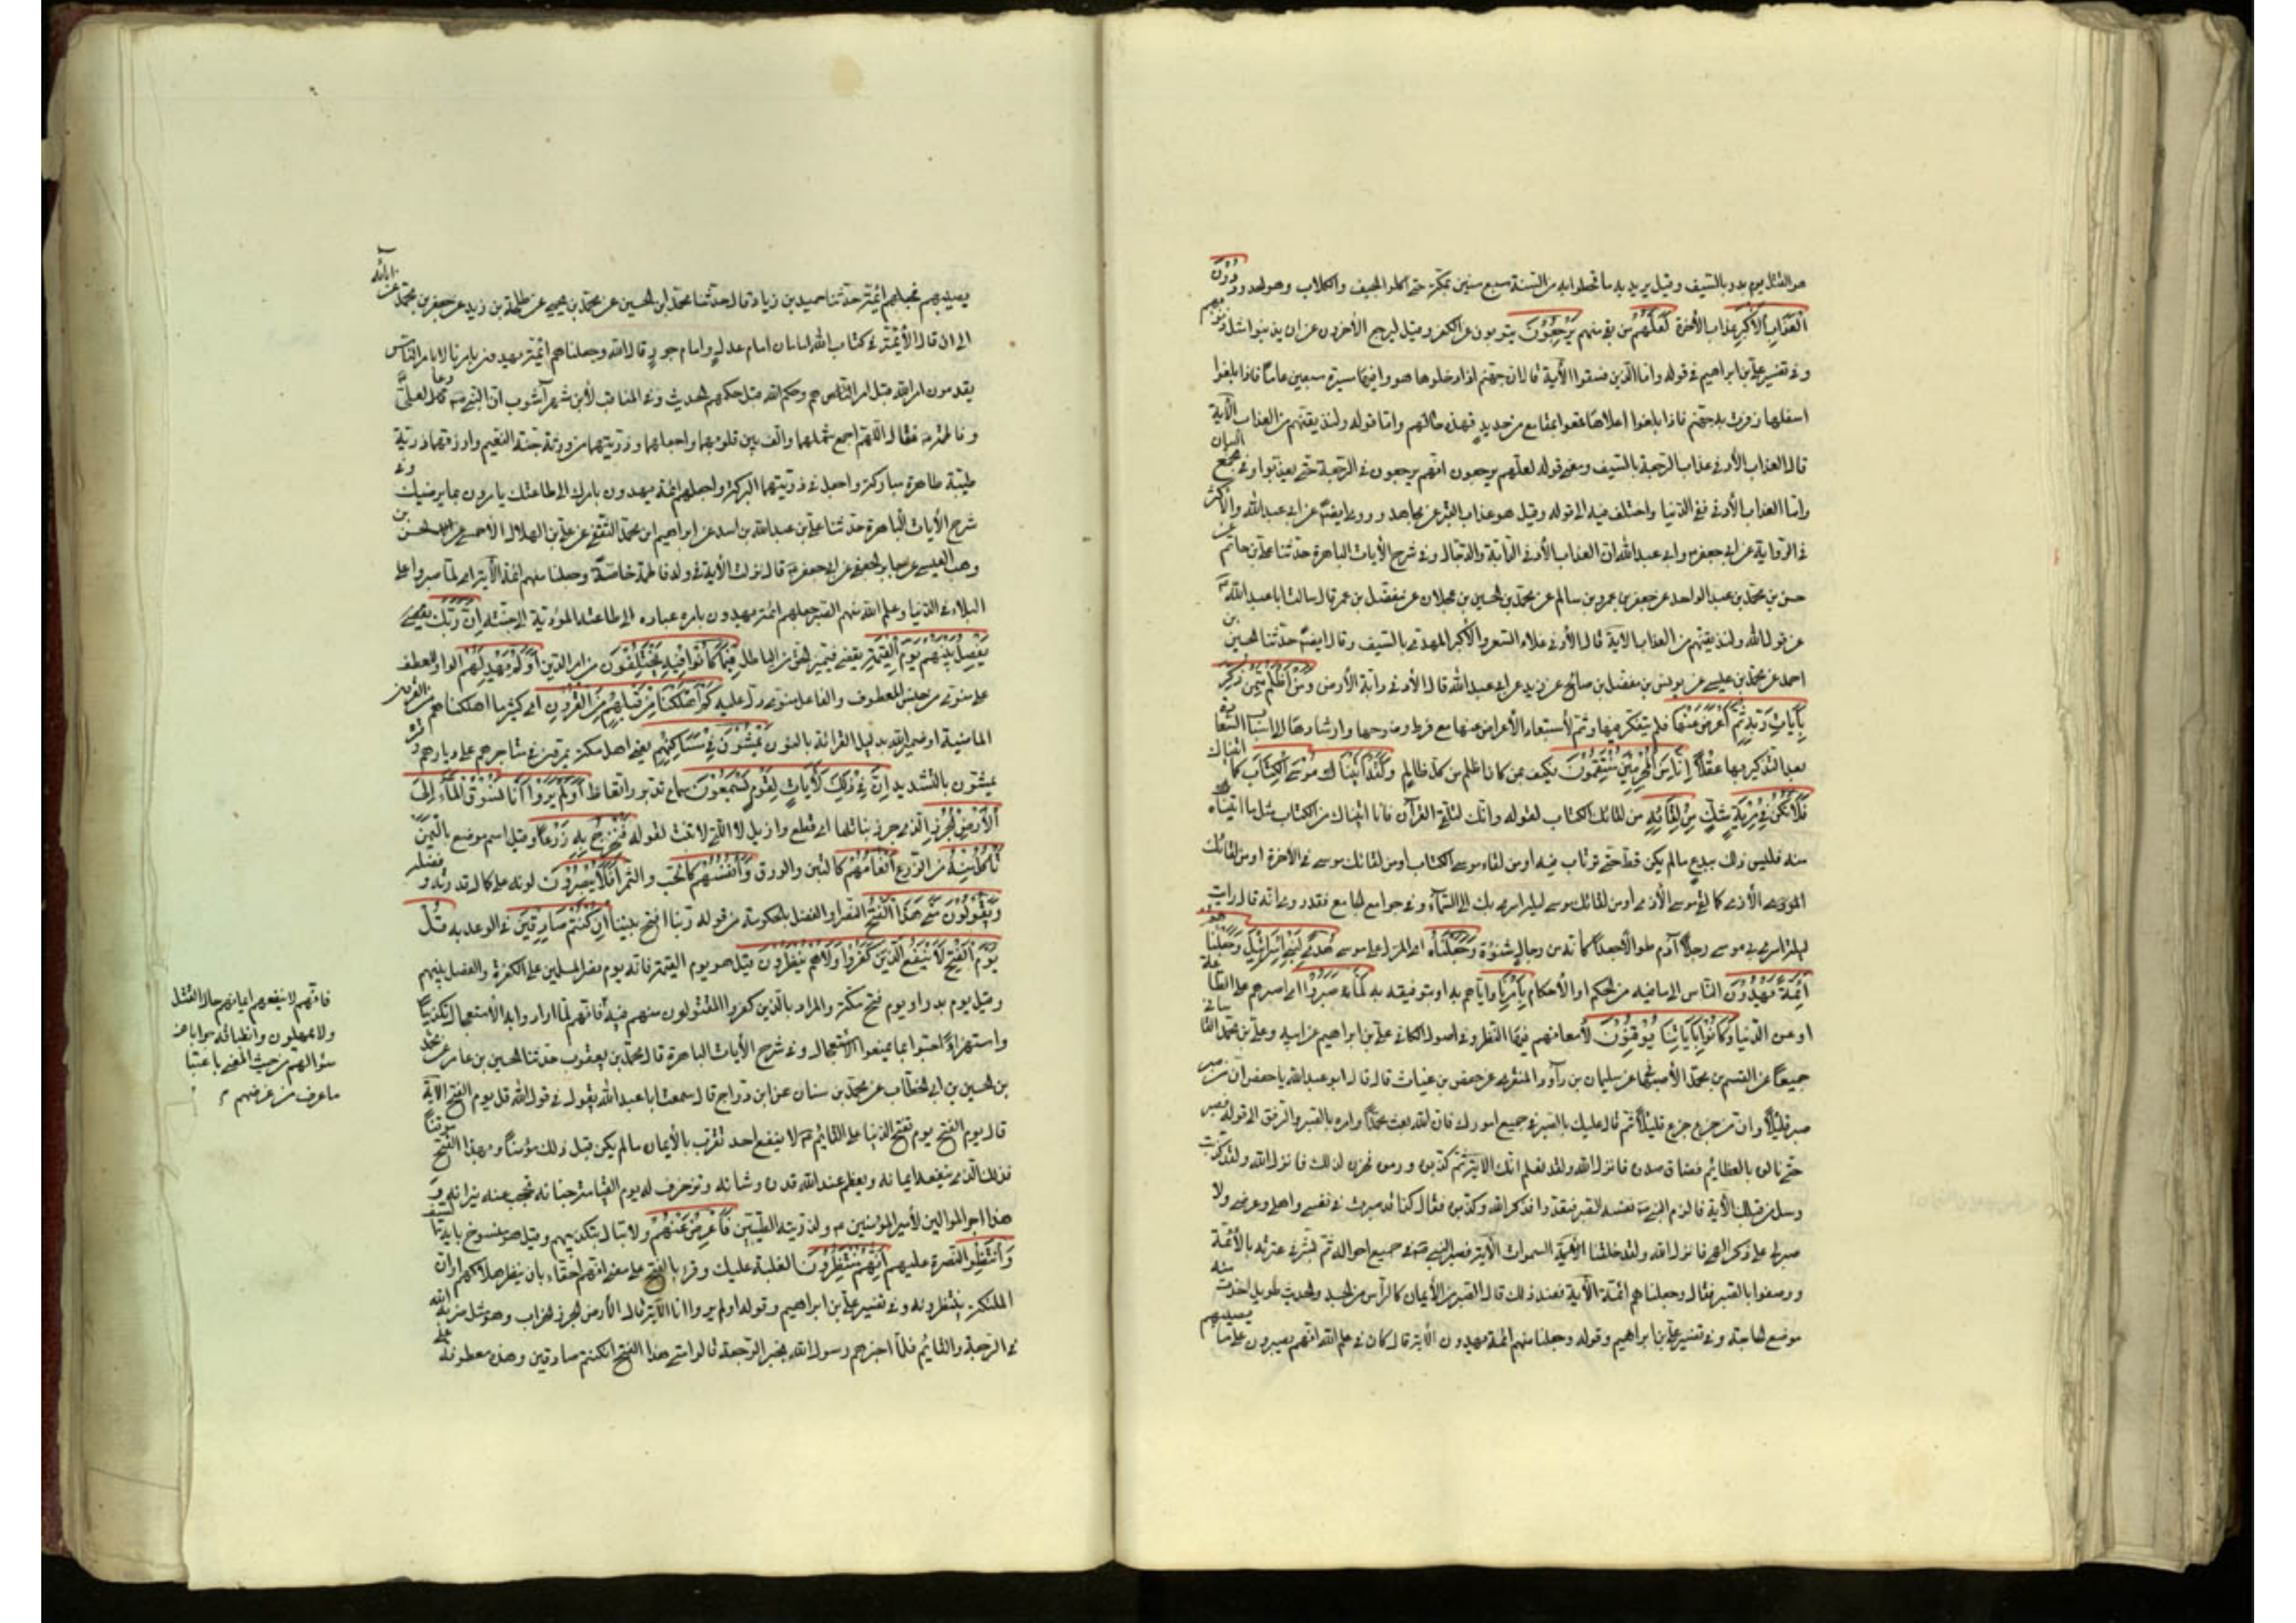 هو القتل يوم بدر بالسيف وقيل يريد به ما محنوا به من السنة سبع سنين بمكة حتى اكلوا الجيف والكلاب وهو لمجاهد دُونَ
الْعَذَابِ الْأَكْبَرِ عذاب الآخرة لَعَلَّهُمْ من بقى منهم يَرْجِعُونَ يتوبون عن الكفر وقيل ليرجع الآخرون عن ان يذنبوا مثل ذنوبهم
وفي تفسير علي بن ابراهيم في قوله واما الذين فسقوا الآية قال ان جهنم اذا دخلوها هووا فيها مسيرة سبعين عاما فاذا بلغوا
اسفلها زفرت بهم جهنم فاذا بلغوا اعلاها قمعوا بمقامع من حديد فهذه حالهم واما قوله ولنذيقنهم من العذاب الآية
قال العذاب الأدنى عذاب الرجعة بالسيف ومعنى قوله لعلهم يرجعون انهم يرجعون في الرجعة حتى يعذبوا وفي مجمع البيان
واما العذاب الأدنى ففي الدنيا واختلف فيه الى قوله وقيل هو عذاب القبر عن مجاهد وروى ايضا عن ابي عبدالله والأكثر
في الرواية عن ابي جعفر وابي عبدالله ان العذاب الأدنى الدابة والدجال وفي شرح الآيات الباهرة حدثنا علي بن حاتم عن
حسن بن محمد بن عبد الواحد عن جعفر بن عمر بن سالم عن محمد بن حسين بن عجلان عن مفضل بن عمر قال سالت ابا عبدالله
عن قول الله ولنذيقنهم من العذاب الآية قال الأدنى غلاء السعر والأكبر المهدي بالسيف وقال ايضا حدثنا الحسين بن
احمد عن محمد بن عيسى عن يونس بن مفضل بن صالح عن زيد عن ابي عبدالله قال الأدنى دابة الأرض وَمَنْ أَظْلَمُ مِمَّنْ ذُكِّرَ
بِآيَاتِ رَبِّهِ ثُمَّ أَعْرَضَ عَنْهَا فلم يتفكر فيها وثم لأستبعاد الأعراض عنها مع فرط وضوحها وارشادها الى اسباب السعادة
بعد التذكير بها عقلا إِنَّا مِنَ الْمُجْرِمِينَ مُنْتَقِمُونَ فكيف بمن كان اظلم من كل ظالم وَلَقَدْ آتَيْنَا مُوسَى الْكِتَابَ كما اتيناك
فَلَا تَكُنْ فِي مِرْيَةٍ شك مِنْ لِقَائِهِ من لقائك الكتاب لقوله وانك لتلقى القرآن فانا اتيناك من الكتاب مثل ما اتيناه
منه فليس ذلك ببدع ما لم يكن قط حتى ترتاب فيه او من لقاء موسى الكتاب او من لقائك موسى في الآخرة او من لقائك
ليلة اسرى بي موسى رجلا آدم طوالا جعدا كانه من رجال شنوءة وَجَعَلْنَاهُ اى المنزل على موسى هُدًى لِبَنِي إِسْرَائِيلَ وَجَعَلْنَا مِنْهُمْ
أَئِمَّةً يَهْدُونَ الناس الى ما فيه من الحكم او الأحكام بِأَمْرِنَا واياهم به او بتوفيقه به لَمَّا صَبَرُوا اى لصبرهم على الطاعة
او عن الدنيا وَكَانُوا بِآيَاتِنَا يُوقِنُونَ لأمعانهم فيها النظر وفي اصول الكافي علي بن ابراهيم عن ابيه وعلي بن محمد القاساني
جميعا عن القسم بن محمد الأصبهاني عن سليمان بن داود المنقري عن حفص بن غياث قال قال ابو عبدالله يا حفص ان من صبر
صبر قليلا وان من جزع جزع قليلا ثم قال عليك بالصبر في جميع امورك فان الله بعث محمدا وامره بالصبر والرفق الى قوله فصبر
حتى نالوه بالعظائم فضاق صدره فانزل الله ولقد نعلم انك الآية ثم كذبوه ورموه فحزن لذلك فانزل الله ولقد كذبت
رسل من قبلك الآية فالزم النبي نفسه الصبر فتعدوا فذكر الله وكذبوه فقال كنا قد صبرت في نفسي واهلي وعرضي ولا
صبر لي على ذكر الهي فانزل الله ولقد خلقنا الآية السموات الآية فصبر النبي في جميع احواله ثم بشر في عترته بالأئمة
ووصفوا بالصبر فقال وجعلنا هم ائمة الآية فعند ذلك قال الصبر من الأيمان كالرأس من الجسد والحديث طويل اخذت منه
موضع الحاجة وفي تفسير علي بن ابراهيم وقوله وجعلنا منهم ائمة يهدون الآية قال كان في علم الله انهم يصبرون على ما يصيبهم
يصيبهم فجعلهم ائمة حدثنا حميد بن زياد قال حدثنا محمد بن الحسين عن محمد بن يحيى عن طلحة بن زيد عن جعفر بن محمد عن ابائه
قال الأئمة في كتاب الله امامان امام عدل وامام جور قال الله وجعلناهم ائمة يهدون بامرنا لا بامر الناس
يقدمون امر الله قبل امر الناس هم وحكم الله قبل حكمهم الحديث وفي المناقب لأبن شهر آشوب ان النبي دعا لعلي
وفاطمة فقال اللهم اجمع شملهما والف بين قلوبهما واجعلهما وذريتهما من ورثة جنة النعيم وارزقهما ذرية
طيبة طاهرة مباركة واجعل في ذريتهما البركة واجعلهم ائمة يهدون بامرك الى طاعتك يامرون بما يرضيك وفي
شرح الآيات الباهرة حدثنا علي بن عبدالله بن اسد عن ابراهيم ابن محمد الثقفي عن علي بن الهلال الأحمسي عن الحسن بن
وهب العبسي عن جابر الجعفي عن ابي جعفر قال نزلت الآية في ولد فاطمة خاصة وجعلنا منهم ائمة الآية اى لما صبروا على
البلاء في الدنيا وعلم الله منهم الصبر جعلهم ائمة يهدون بامره عباده الى طاعته المؤدية الى جنته إِنَّ رَبَّكَ هُوَ
يَفْصِلُ بَيْنَهُمْ يَوْمَ الْقِيٰمَةِ يقضى فيميز الحق من الباطل فِيمَا كَانُوا فِيهِ يَخْتَلِفُونَ من امر الدين أَوَلَمْ يَهْدِ لَهُمْ الواو للعطف
على منوى من جنس المعطوف والفاعل منوى دل عليه كَمْ أَهْلَكْنَا مِنْ قَبْلِهِمْ مِنَ الْقُرُونِ اى كثرة ما اهلكناهم من القرون
الماضية او ضمير الله بدليل القرائة بالنون يَمْشُونَ فِي مَسَاكِنِهِمْ يعنى اهل مكة يمرون في متاجرهم على ديارهم وقرئ
يمشون بالتشديد إِنَّ فِي ذَلِكَ لَآيَاتٍ لِقَوْمٍ يَسْمَعُونَ سماع تدبر واتعاظ أَوَلَمْ يَرَوْا أَنَّا نَسُوقُ الْمَاءَ إِلَى
الْأَرْضِ الْجُرُزِ الذى جرز نباتها اى قطع وازيل لا التي لا تنبت لقوله فَنُخْرِجُ بِهِ زَرْعًا وقيل اسم موضع باليمن
تَأْكُلُ مِنْهُ من الزرع أَنْعَامُهُمْ كالتبن والورق وَأَنْفُسُهُمْ كالحب والثمر أَفَلَا يُبْصِرُونَ
وَيَقُولُونَ مَتَى هَذَا الْفَتْحُ النصر او الفصل بالحكومة من قوله ربنا افتح بيننا إِنْ كُنْتُمْ صَادِقِينَ في الوعد به قُلْ
يَوْمَ الْفَتْحِ لَا يَنْفَعُ الَّذِينَ كَفَرُوا وَلَا هُمْ يُنْظَرُونَ قيل هو يوم القيمة فانه يوم نصر المسلمين على الكفرة والفصل بينهم
وقيل يوم بدر او يوم فتح مكة والمراد بالذين كفروا المقتولون منهم فيه فانهم لما ارادوا به الأستعجال تكذيبا
واستهزاء اجيبوا بما يمنع الأستعجال وفي شرح الآيات الباهرة قال محمد بن يعقوب حدثنا الحسين بن عامر عن محمد
بن الحسين بن ابي الخطاب عن محمد بن سنان عن ابن دراج قال سمعت ابا عبدالله يقول في قول الله قل يوم الفتح الآية
قال يوم الفتح يوم تفتح الدنيا على القائم لا ينفع احد تقرب بالأيمان ما لم يكن قبل ذلك مؤمنا وبهذا الفتح موقنا
فذلك الذى ينفعه ايمانه ويعظم عند الله قدره وشانه وتزخرف له يوم القيامة جنانه وتحجب عنه نيرانه
هذا اجر الموالين لأمير المؤمنين ولذريته الطيبين فَأَعْرِضْ عَنْهُمْ ولا تبال بتكذيبهم وقيل هو منسوخ باية السيف
وَانْتَظِرْ النصرة عليهم إِنَّهُمْ مُنْتَظِرُونَ الغلبة عليك وقرء بالفتح على معنى انهم احقاء بان ينتظر هلاكهم او ان
الملئكة ينتظرونه وفي تفسير علي بن ابراهيم وقوله اولم يروا انا الآية قال الأرض الجرز الخراب وهو مثل ضربه الله
في الرجعة والقائم فلما اخبرهم رسول الله بخبر الرجعة قالوا متى هذا الفتح ان كنتم صادقين وهذه معطوفة على
فانهم لا ينفعهم ايمانهم حال القتل
ولا يمهلون وانطباقه جوابا عن
سؤالهم من حيث المعنى باعتبار
ما عرف من غرضهم